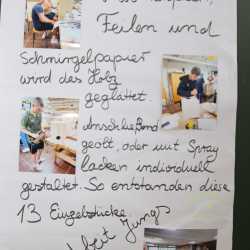 Feilen und
Schmirgelpapier
wird das Holz
geglättet.
Anschließend
geölt, oder mit Spray
lacken individuell
gestaltet. So entstanden diese
13 Einzelstücke.
Jungs